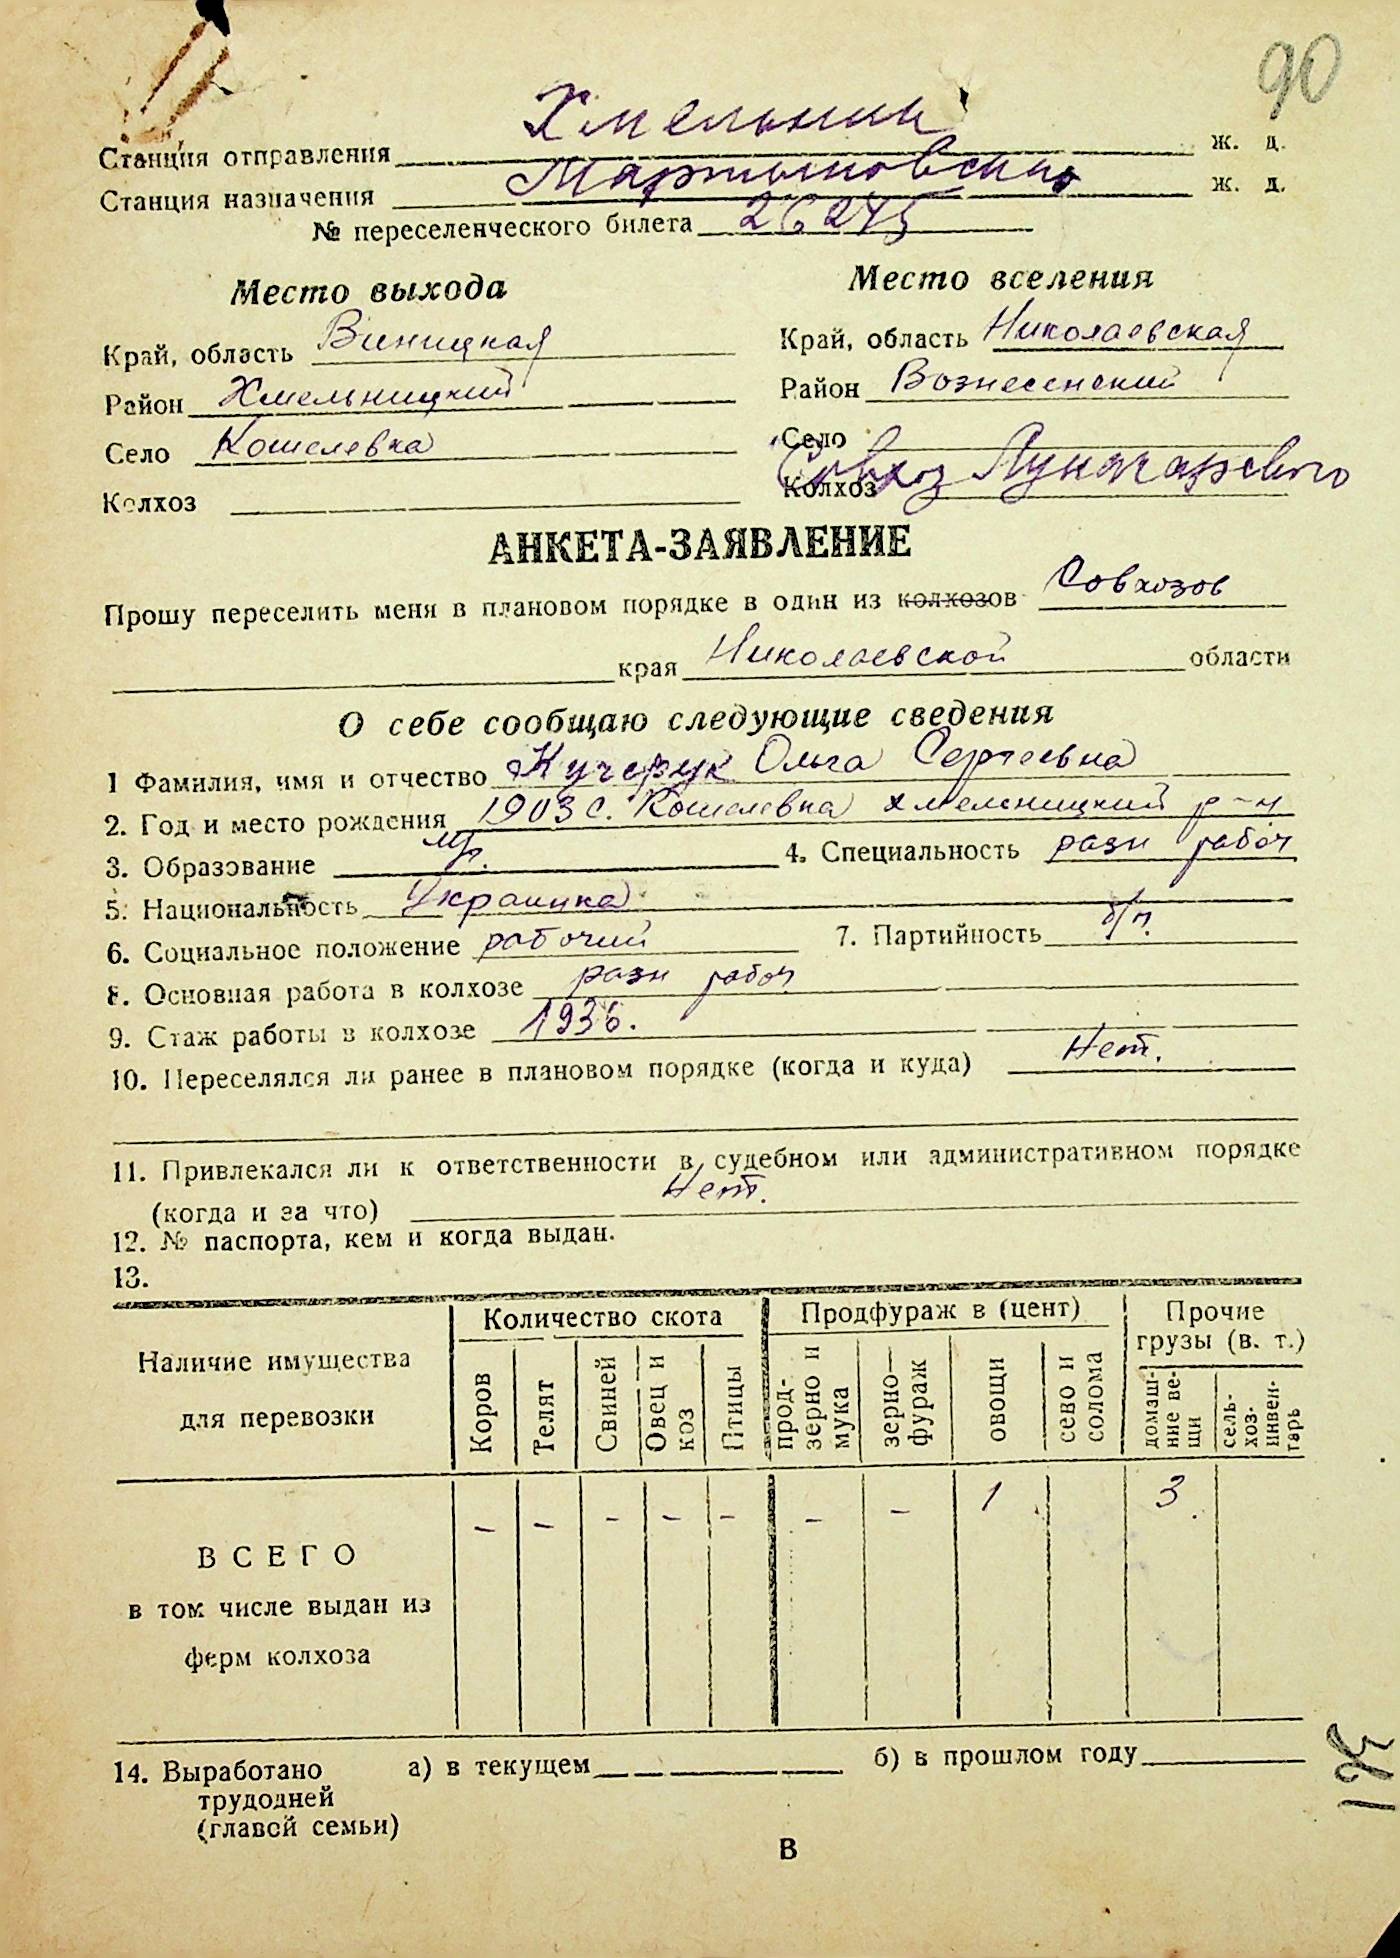 90
Станция отправления Хмельник ж. д.
Станция назначения Мартыновская ж. д.
№ переселенческого билета 26275
Место выхода
Край, область Виницкая
Район Хмельницкий
Село Кошелевка
Колхоз
Место вселения
Край, область Николаевская
Район Вознесенский
Село
Колхоз Совхоз Луначарского
АНКЕТА-ЗАЯВЛЕНИЕ
Прошу переселить меня в плановом порядке в один из колхозов Совхозов
края Николаевской области
О себе сообщаю следующие сведения
1 Фамилия, имя и отчество Кучерук Ольга Сергеевна
2. Год и место рождения 1903 с. Кошелевка хмельницкий р-н
3. Образование 4. Специальность разн рабоч
5. Национальность Украинка
6. Социальное положение рабочий 7. Партийность б/п.
8. Основная работа в колхозе разн рабоч
9. Стаж работы в колхозе 1936.
10. Переселялся ли ранее в плановом порядке (когда и куда) Нет.
11. Привлекался ли к ответственности в судебном или административном порядке
(когда и за что) Нет.
12. № паспорта, кем и когда выдан.
13.
Наличие имущества
для перевозки
Количество скота
Коров
Телят
Свиней
Овец и
коз
Птицы
Продфураж в (цент)
прод-
зерно и
мука
зерно—
фураж
овощи
сево и
солома
Прочие
грузы (в. т.)
домаш-
ние ве-
щи
сель-
хоз-
инвен-
тарь
ВСЕГО - - - - - - - 1 3
в том числе выдан из
ферм колхоза
14. Выработано а) в текущем б) в прошлом году
трудодней
(главой семьи)
В